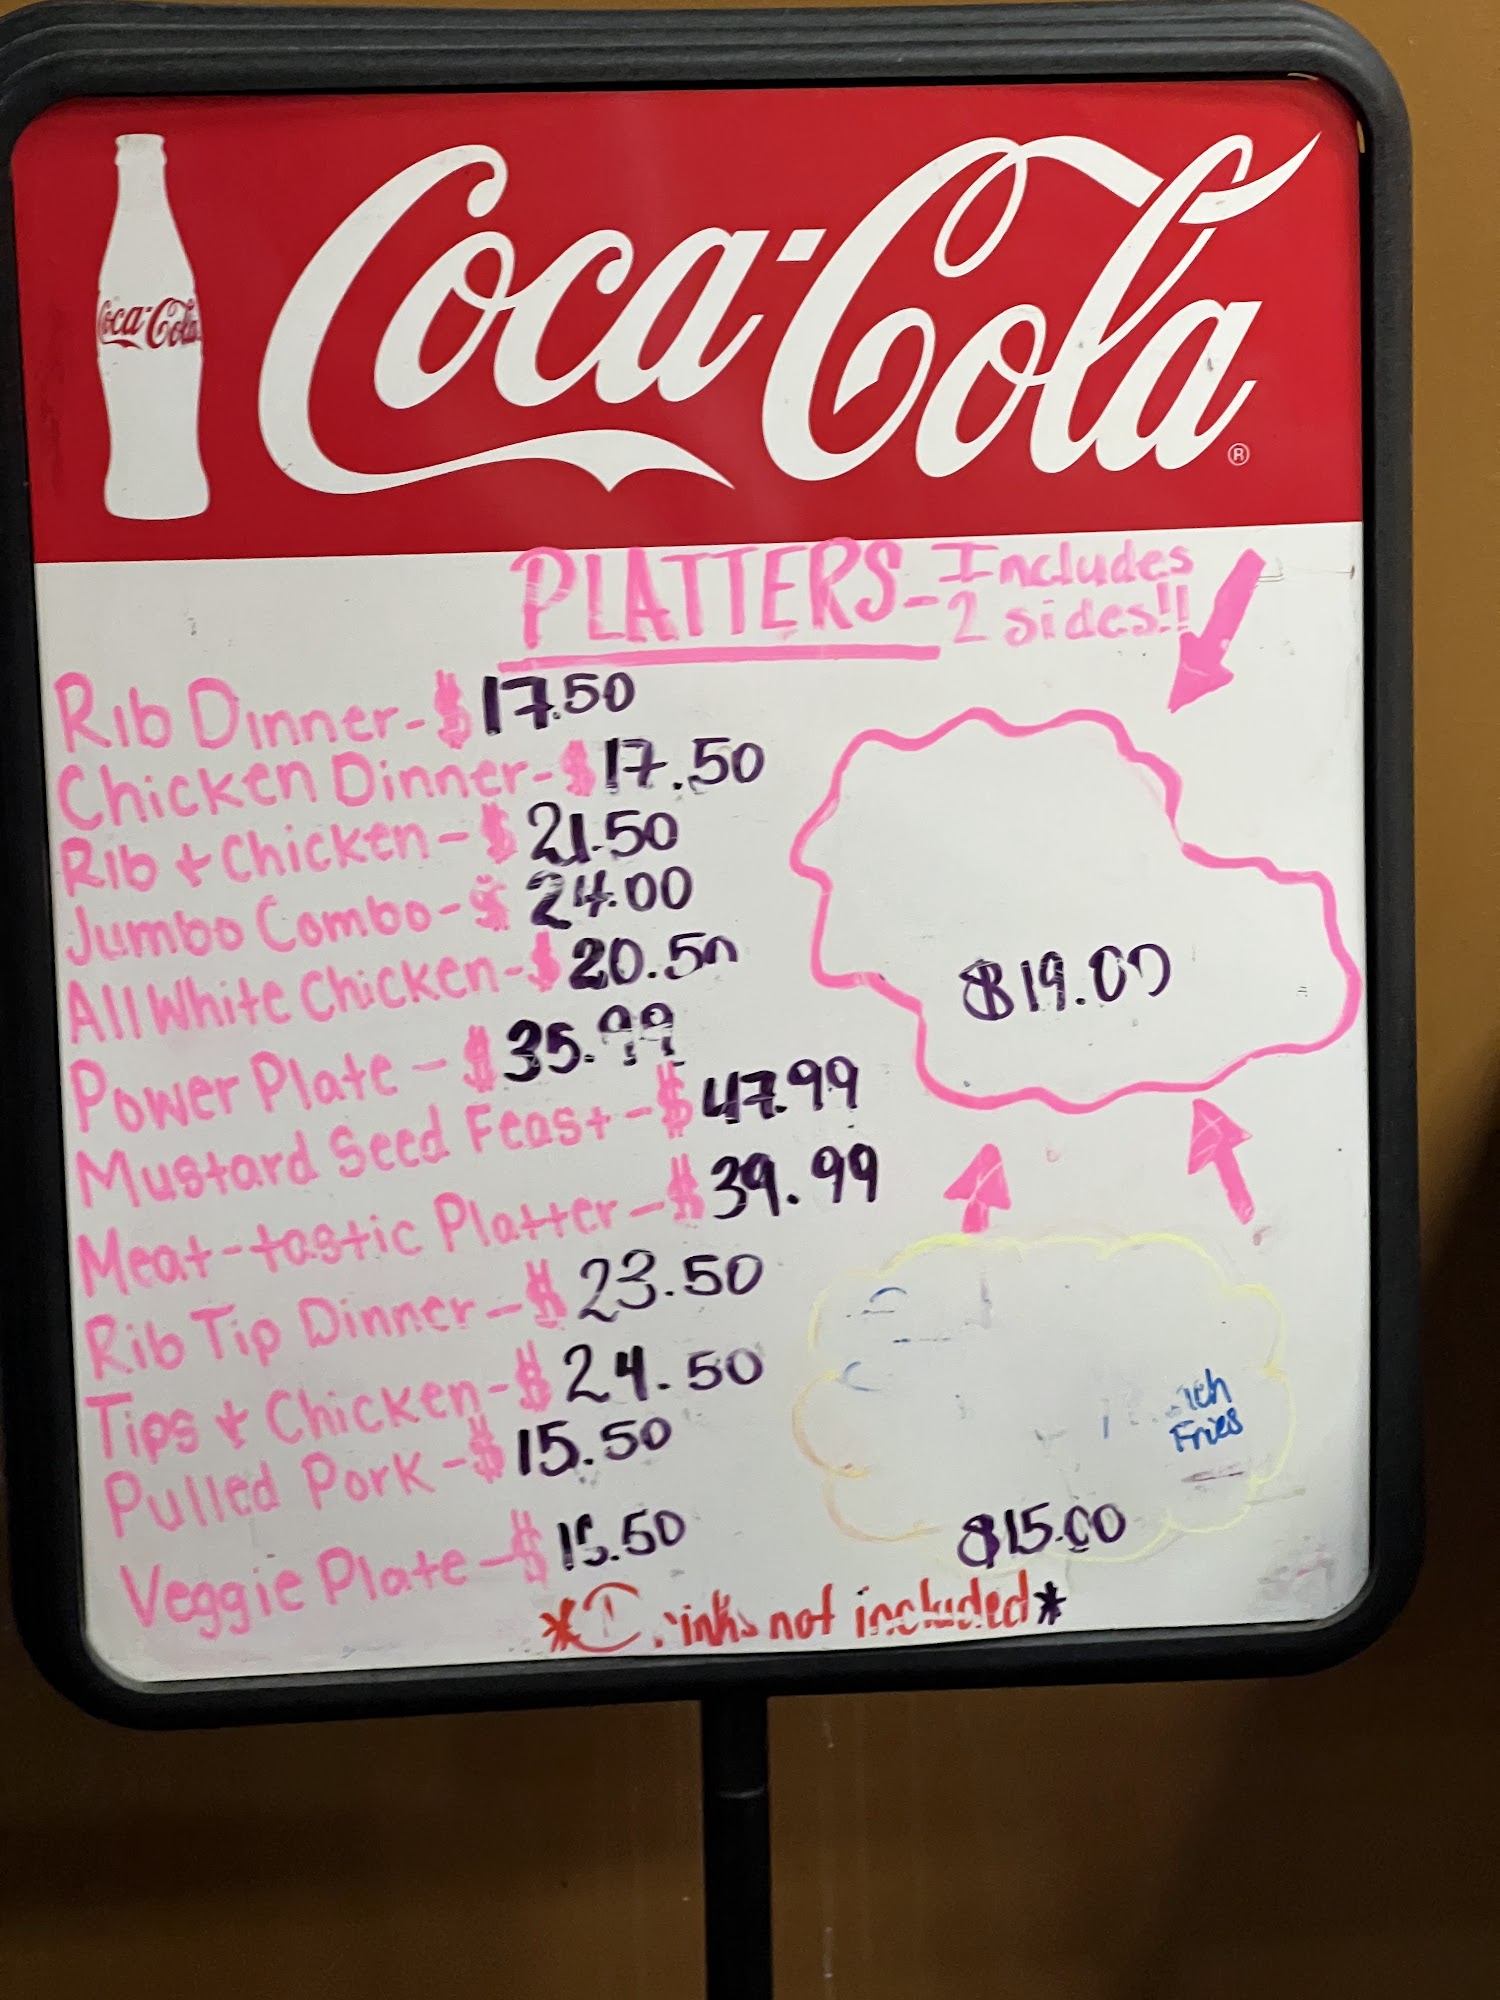 Coca-Cola
Coca-Cola ®
PLATTERS - Includes
2 sides!!
Rib Dinner - $17.50
Chicken Dinner - $17.50
Rib + Chicken - $21.50
Jumbo Combo - $24.00
All White Chicken - $20.50
Power Plate - $35.99
Mustard Seed Feast - $47.99
Meat-tastic Platter - $39.99
Rib Tip Dinner - $23.50
Tips + Chicken - $24.50
Pulled Pork - $15.50
Veggie Plate - $15.50
$19.00
Fries
$15.00
*Drinks not included*